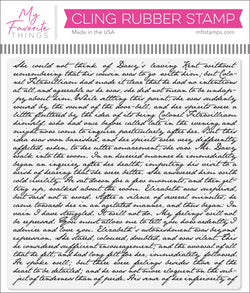 My
Favorite
THINGS
CLING RUBBER STAMP
Made in the USA
mftstamps.com
She could not think of Darcy's leaving Kent without
remembering that his cousin was to go with him; but Colo-
nel Fitzwilliam had made it clear that he had no intentions
at all, and agreeable as he was, she did not mean to be unhap-
py about him. While settling this point, she was suddenly
roused by the sound of the door-bell, and her spirits were a
little fluttered by the idea of its being Colonel Fitzwilliam
himself, who had once before called late in the evening, and
might now come to inquire particularly after her. But this
idea was soon banished, and her spirits were very differently
affected, when, to her utter amazement, she saw Mr. Darcy
walk into the room. In an hurried manner he immediately
began an inquiry after her health, imputing his visit to a
wish of hearing that she were better. She answered him with
cold civility. He sat down for a few moments, and then get-
ting up, walked about the room. Elizabeth was surprised,
but said not a word. After a silence of several minutes, he
came towards her in an agitated manner, and thus began: In
vain I have struggled. It will not do. My feelings will not
be repressed. You must allow me to tell you how ardently I
admire and love you. Elizabeth's astonishment was beyond
expression. She stared, coloured, doubted, and was silent. This
he considered sufficient encouragement; and the avowal of all
that he felt, and had long felt for her, immediately followed.
He spoke well, but there were feelings besides those of the
heart to be detailed; and he was not more eloquent on the sub-
ject of tenderness than of pride. His sense of her inferiority of